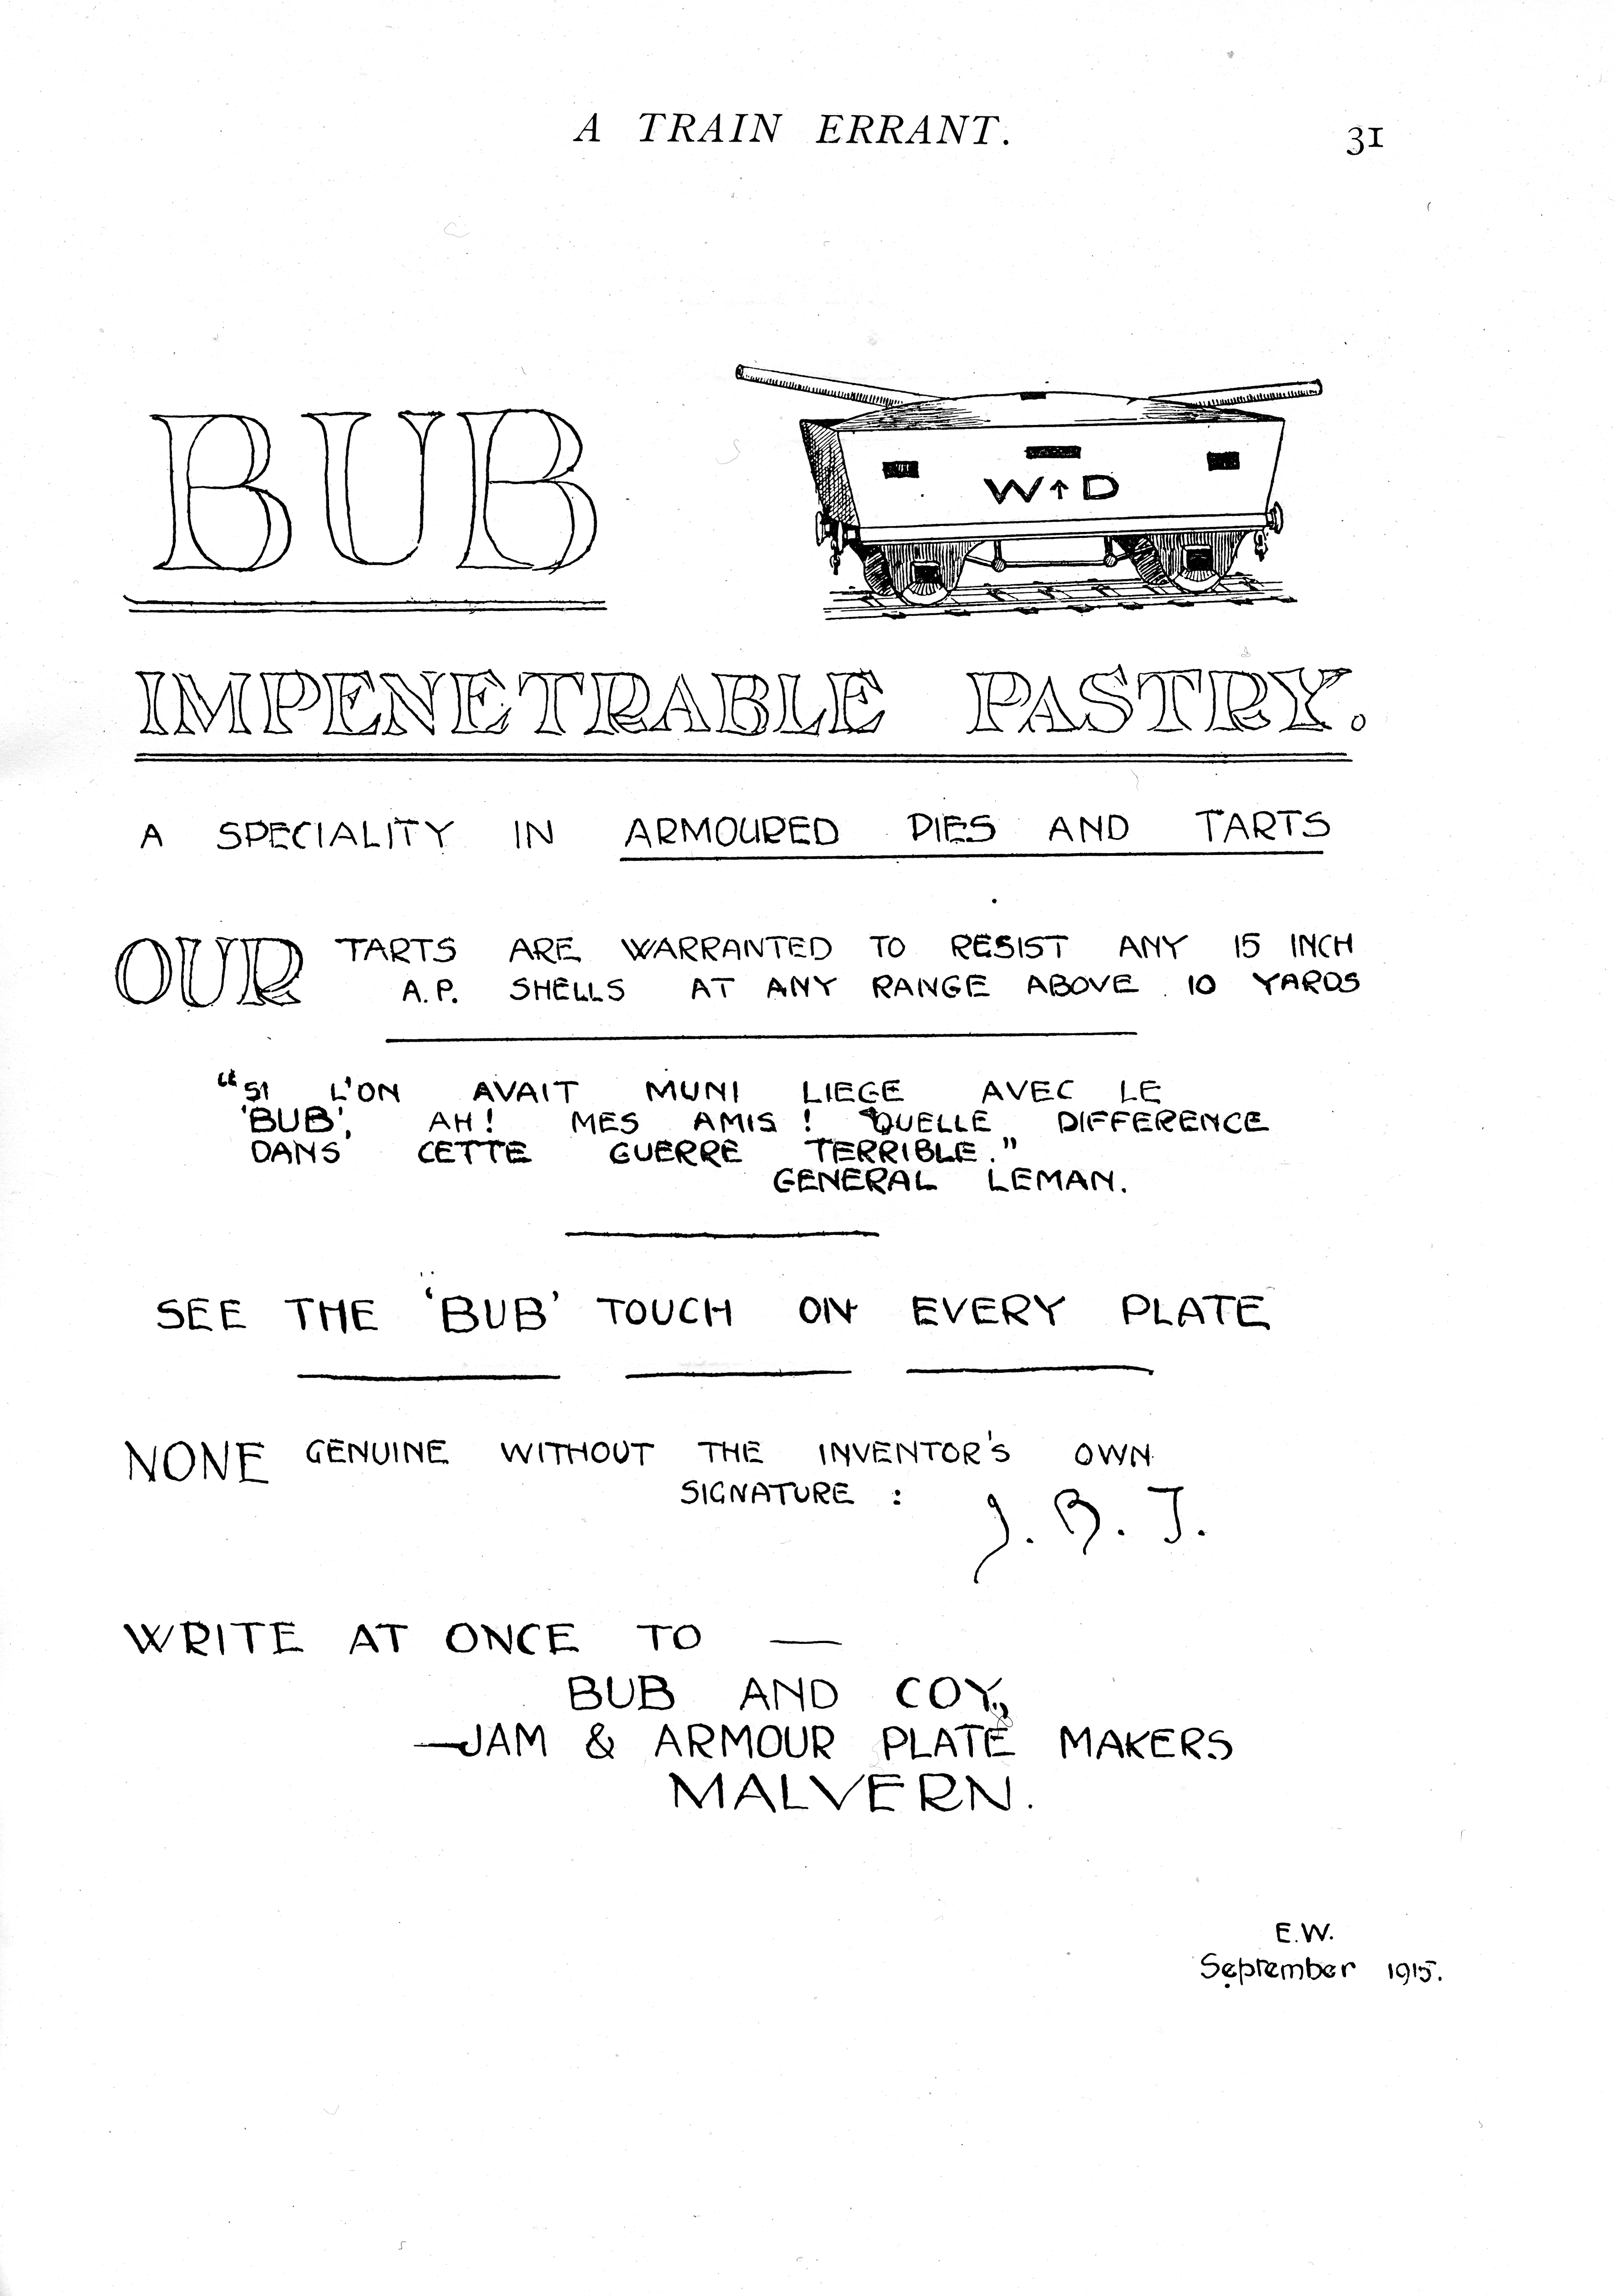 A TRAIN ERRANT.
31
BUB
W↑D
IMPENETRABLE PASTRY.
A SPECIALITY IN ARMOURED PIES AND TARTS
OUR TARTS ARE WARRANTED TO RESIST ANY 15 INCH
A.P. SHELLS AT ANY RANGE ABOVE 10 YARDS
"SI L'ON AVAIT MUNI LIEGE AVEC LE
'BUB', AH! MES AMIS! QUELLE DIFFERENCE
DANS CETTE GUERRE TERRIBLE."
GENERAL LEMAN.
SEE THE 'BUB' TOUCH ON EVERY PLATE
NONE GENUINE WITHOUT THE INVENTOR'S OWN
SIGNATURE :
J. B. T.
WRITE AT ONCE TO —
BUB AND COY.,
—JAM & ARMOUR PLATE MAKERS
MALVERN.
E.W.
September 1915.